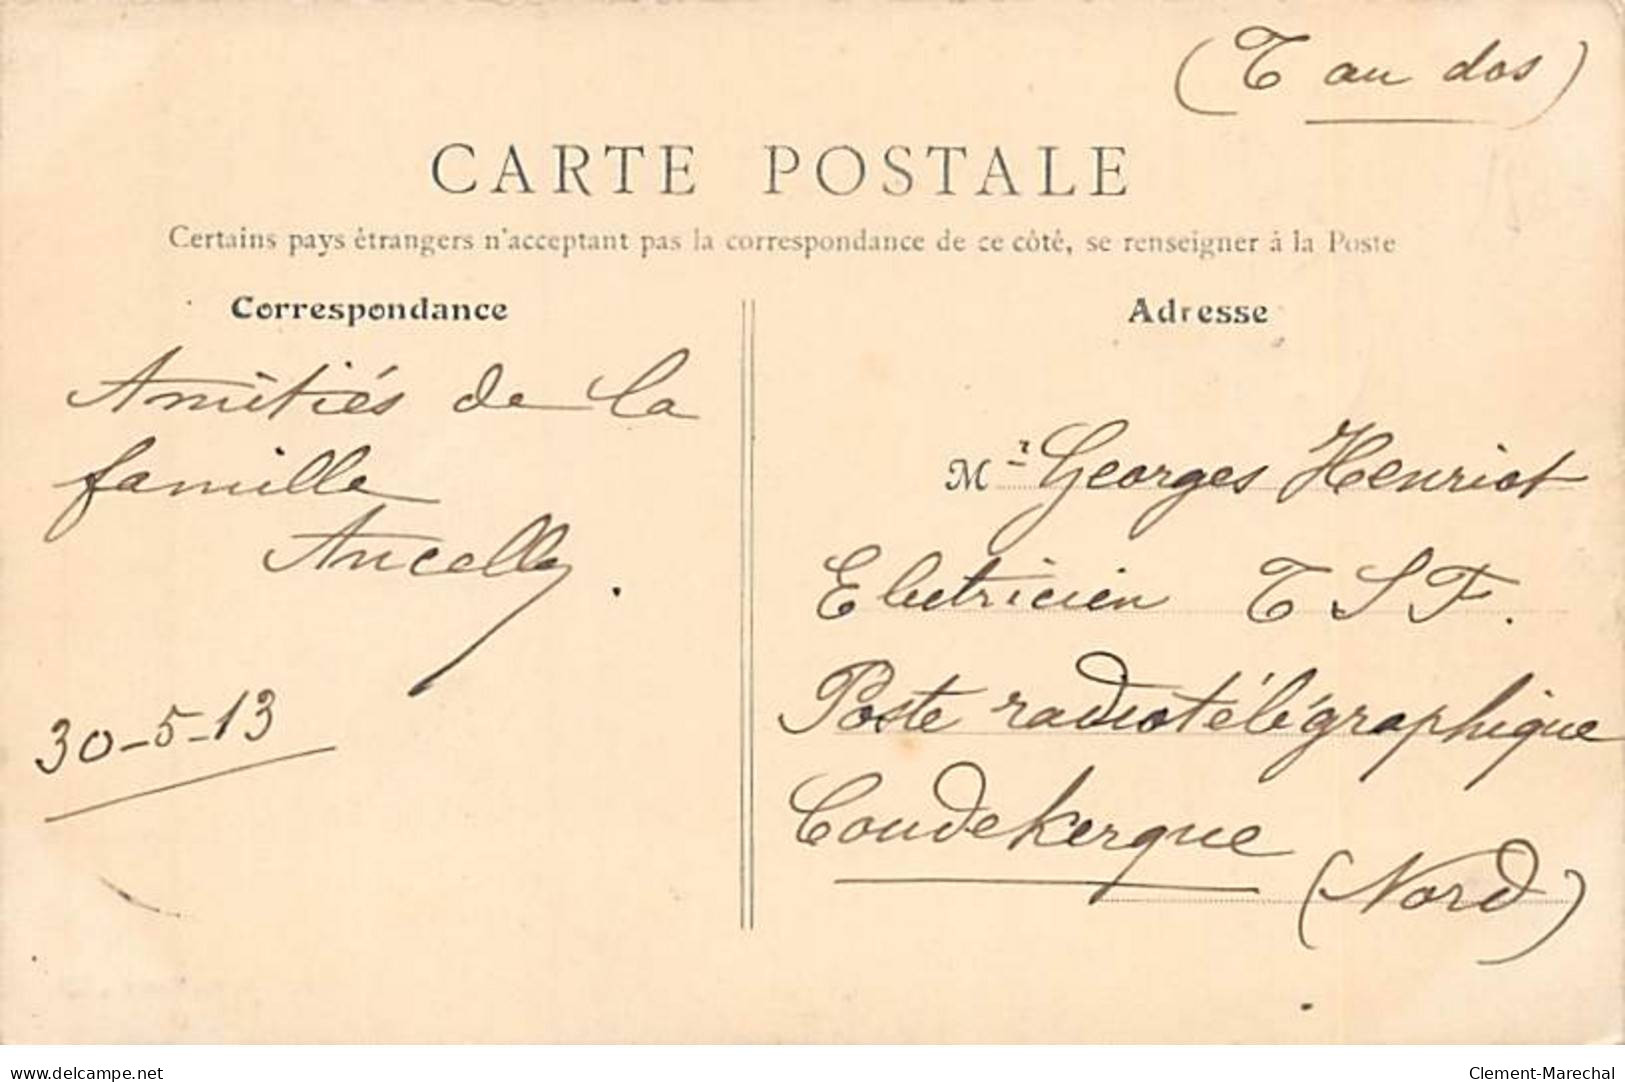 (T au dos)
CARTE POSTALE
Certains pays étrangers n'acceptant pas la correspondance de ce côté, se renseigner à la Poste
Correspondance
Amitiés de la
famille
Ancelly.
30-5-13
Adresse
Mr Georges Henriot
Electricien T S F.
Poste radiotélégraphique
Coudekerque
(Nord)
www.delcampe.net
Clement-Marechal